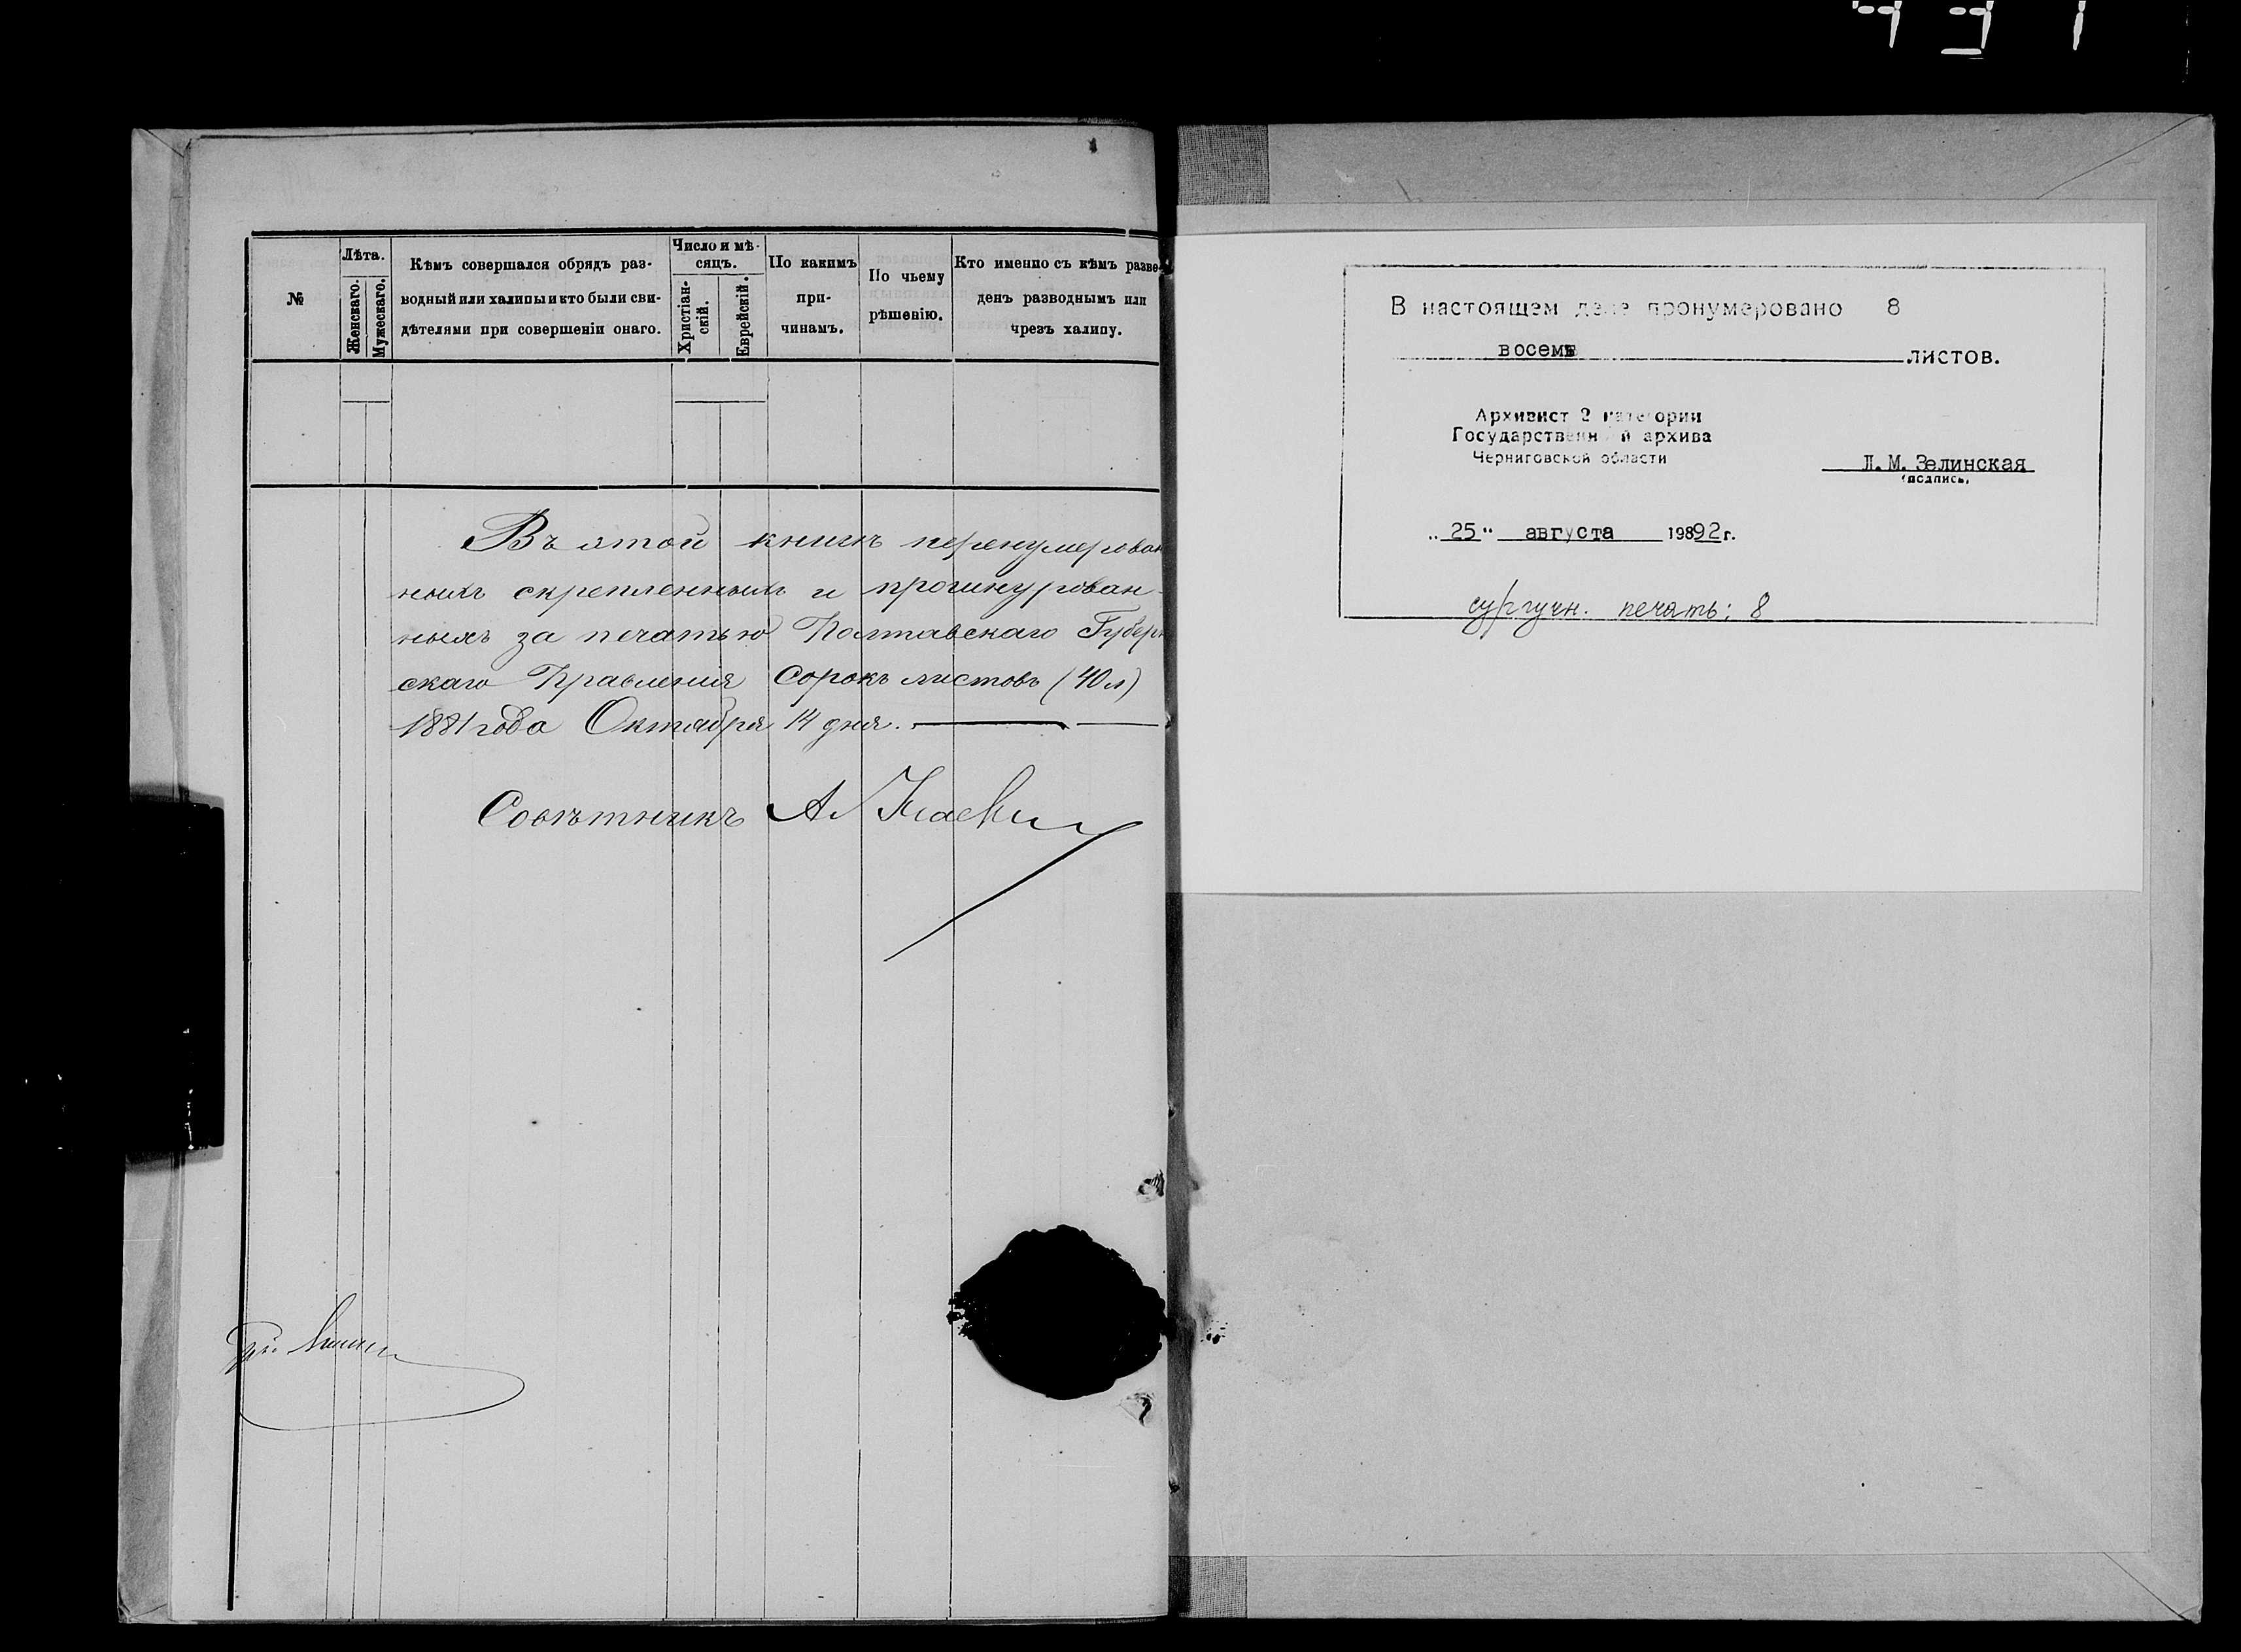 №
Лѣта.
Женскаго.
Мужескаго.
Кѣмъ совершался обрядъ раз-
водный или халицы и кто были сви-
дѣтелями при совершеніи онаго.
Число и мѣ-
сяцъ.
Христіан-
скій.
Еврейскій.
По какимъ
при-
чинамъ.
По чьему
рѣшенію.
Кто именно съ кѣмъ разве-
денъ разводнымъ или
чрезъ халицу.
Въ этой книгѣ перенумерован
ныхъ скрепленныхъ и прошнурован-
ныхъ за печатью Полтавскаго Губерн
скаго Правленія сорокъ листовъ (40 л)
1881 года Октября 14 дня.
Совѣтникъ А.
В настоящем деле пронумеровано 8
восемь листов.
Архивист 2 категории
Государственн й архива
Черниговской области
Л.М. Зелинская
(подпись)
„ 25 " августа 19892 г.
сургучн. печать: 8